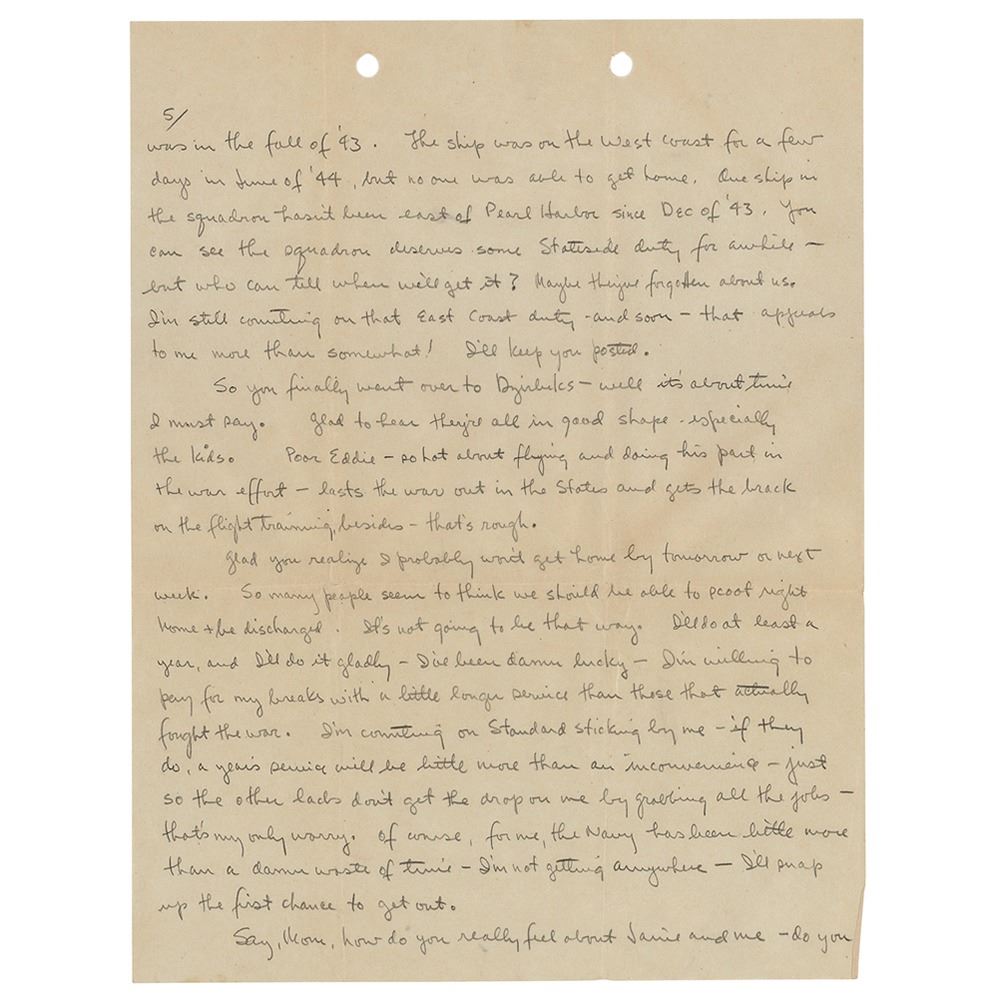 5/
was in the fall of '43. The ship was on the West coast for a few
days in June of '44, but no one was able to get home. One ship in
the squadron hasn't been east of Pearl Harbor since Dec of '43. You
can see the squadron deserves some Stateside duty for awhile —
but who can tell when we'll get it? Maybe they've forgotten about us.
I'm still counting on that East Coast duty - and soon - that appeals
to me more than somewhat! I'll keep you posted.
So you finally went over to — well it's about time
I must say. Glad to hear they're all in good shape - especially
the kids. Poor Eddie - so hot about flying and doing his part in
the war effort - lasts the war out in the States and gets the
on the flight training, besides - that's rough.
Glad you realize I probably won't get home by tomorrow or next
week. So many people seem to think we should be able to scoot right
home + be discharged. It's not going to be that way. I'll do at least a
year, and I'll do it gladly - I've been damn lucky - I'm willing to
pay for my breaks with a little longer service than those that actually
fought the war. I'm counting on Standard sticking by me - if they
do, a year's service will be little more than an inconvenience - just
so the other lads don't get the drop on me by grabbing all the jobs —
that's my only worry. Of course, for me, the Navy has been little more
than a damn waste of time - I'm not getting anywhere - I'll snap
up the first chance to get out.
Say, Mom, how do you really feel about Janie and me - do you